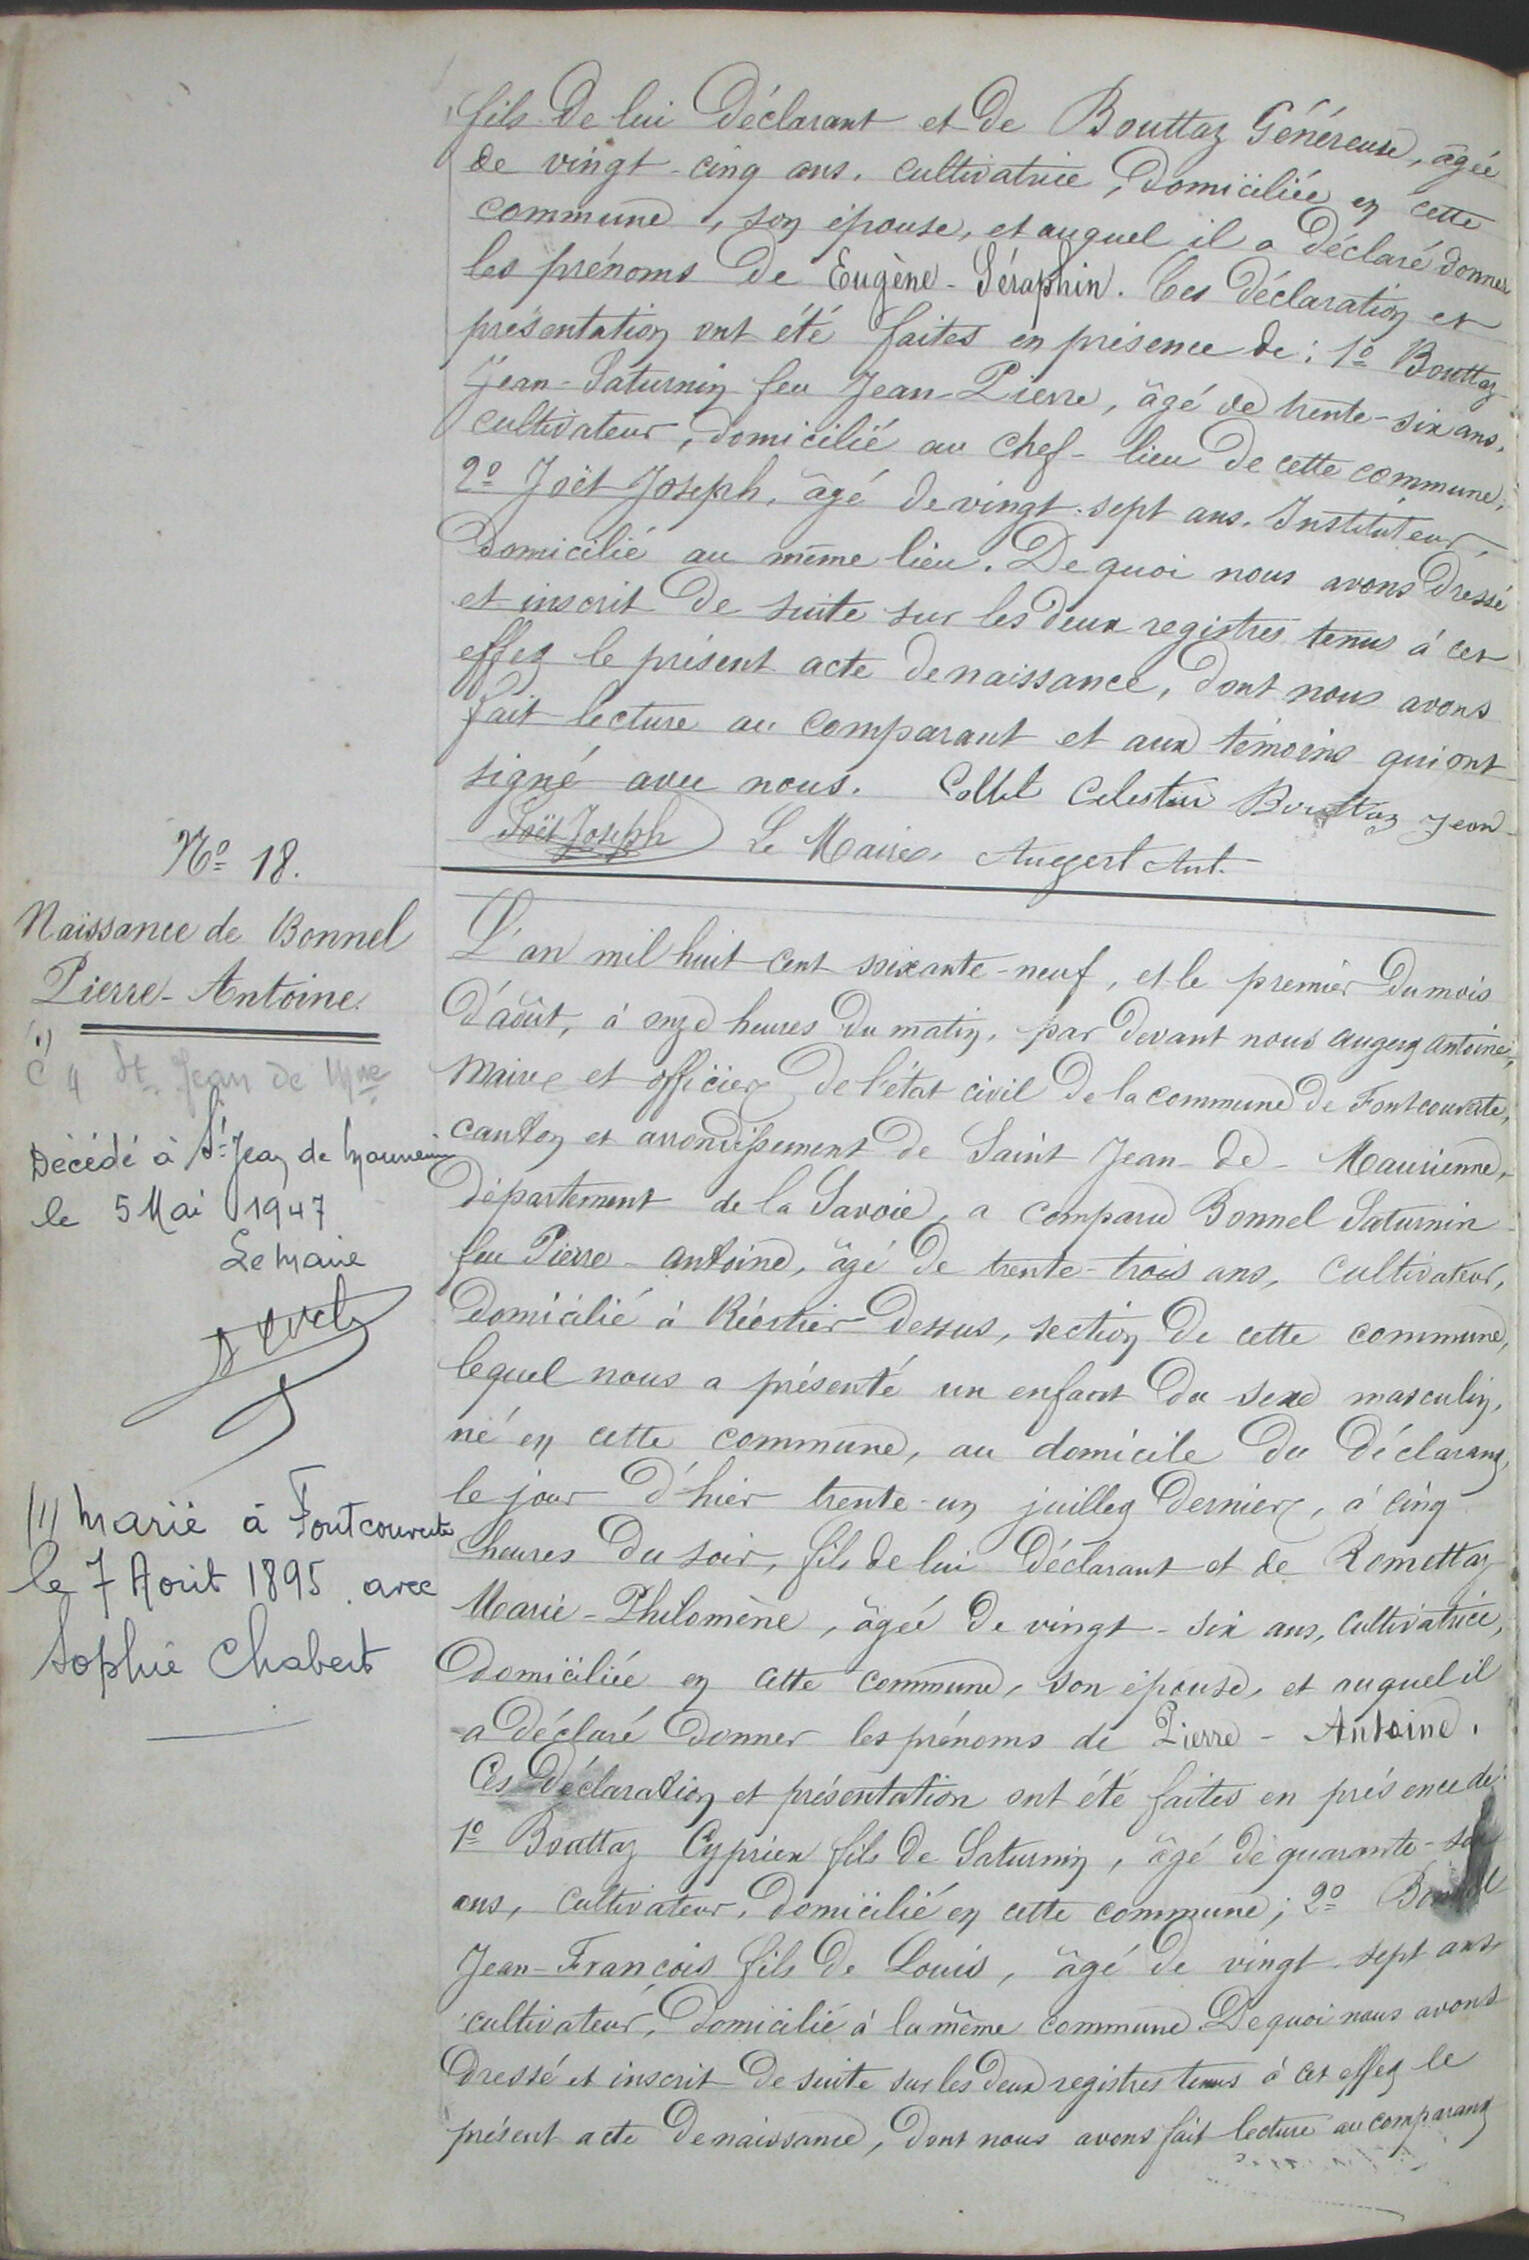 fils de lui déclarant et de Bouttaz Généreuse, âgée
de vingt-cinq ans, cultivatrice, domiciliée en cette
commune, son épouse, et auquel il a déclaré donner
les prénoms de Eugène-Séraphin. Ces déclaration et
présentation ont été faites en présence de : 1º Bouttaz
Jean-Saturnin feu Jean-Pierre, âgé de trente-six ans,
cultivateur, domicilié au chef-lieu de cette commune,
2º Joët Joseph, âgé de vingt-sept ans, Instituteur,
domicilié au même lieu. De quoi nous avons dressé
et inscrit de suite sur les deux registres tenus à cet
effet le présent acte de naissance, dont nous avons
fait lecture au comparant et aux témoins qui ont
signé avec nous. Collet Celestin Bouttaz Jean
Joët Joseph Le Maire, Augert Ant.
Nº 18.
Naissance de Bonnel
Pierre-Antoine
St Jean de Mne
Décédé à St Jean de Maurienne
le 5 Mai 1947
Le Maire
(1) Marié à Fontcouverte
le 7 Août 1895 avec
Sophie Chabert
L'an mil huit cent soixante-neuf, et le premier du mois
d'août, à onze heures du matin, par devant nous Augert Antoine,
Maire et officier de l'état civil de la commune de Fontcouverte,
canton et arrondissement de Saint Jean-de-Maurienne,
département de la Savoie, a comparu Bonnel Saturnin
feu Pierre-Antoine, âgé de trente-trois ans, cultivateur,
domicilié à Rieortier-Dessus, section de cette commune,
lequel nous a présenté un enfant du sexe masculin,
né en cette commune, au domicile du déclarant,
le jour d'hier trente-un juillet dernier, à cinq
heures du soir, fils de lui déclarant et de Romettaz
Marie-Philomène, âgée de vingt-six ans, cultivatrice,
domiciliée en cette commune, son épouse, et auquel il
a déclaré donner les prénoms de Pierre-Antoine.
Ces déclaration et présentation ont été faites en présence de :
1º Bouttaz Cyprien fils de Saturnin, âgé de quarante-
ans, cultivateur, domicilié en cette commune ; 2º
Jean-François fils de Louis, âgé de vingt-sept ans
cultivateur, domicilié à la même commune. De quoi nous avons
dressé et inscrit de suite sur les deux registres tenus à cet effet le
présent acte de naissance, dont nous avons fait lecture au comparant